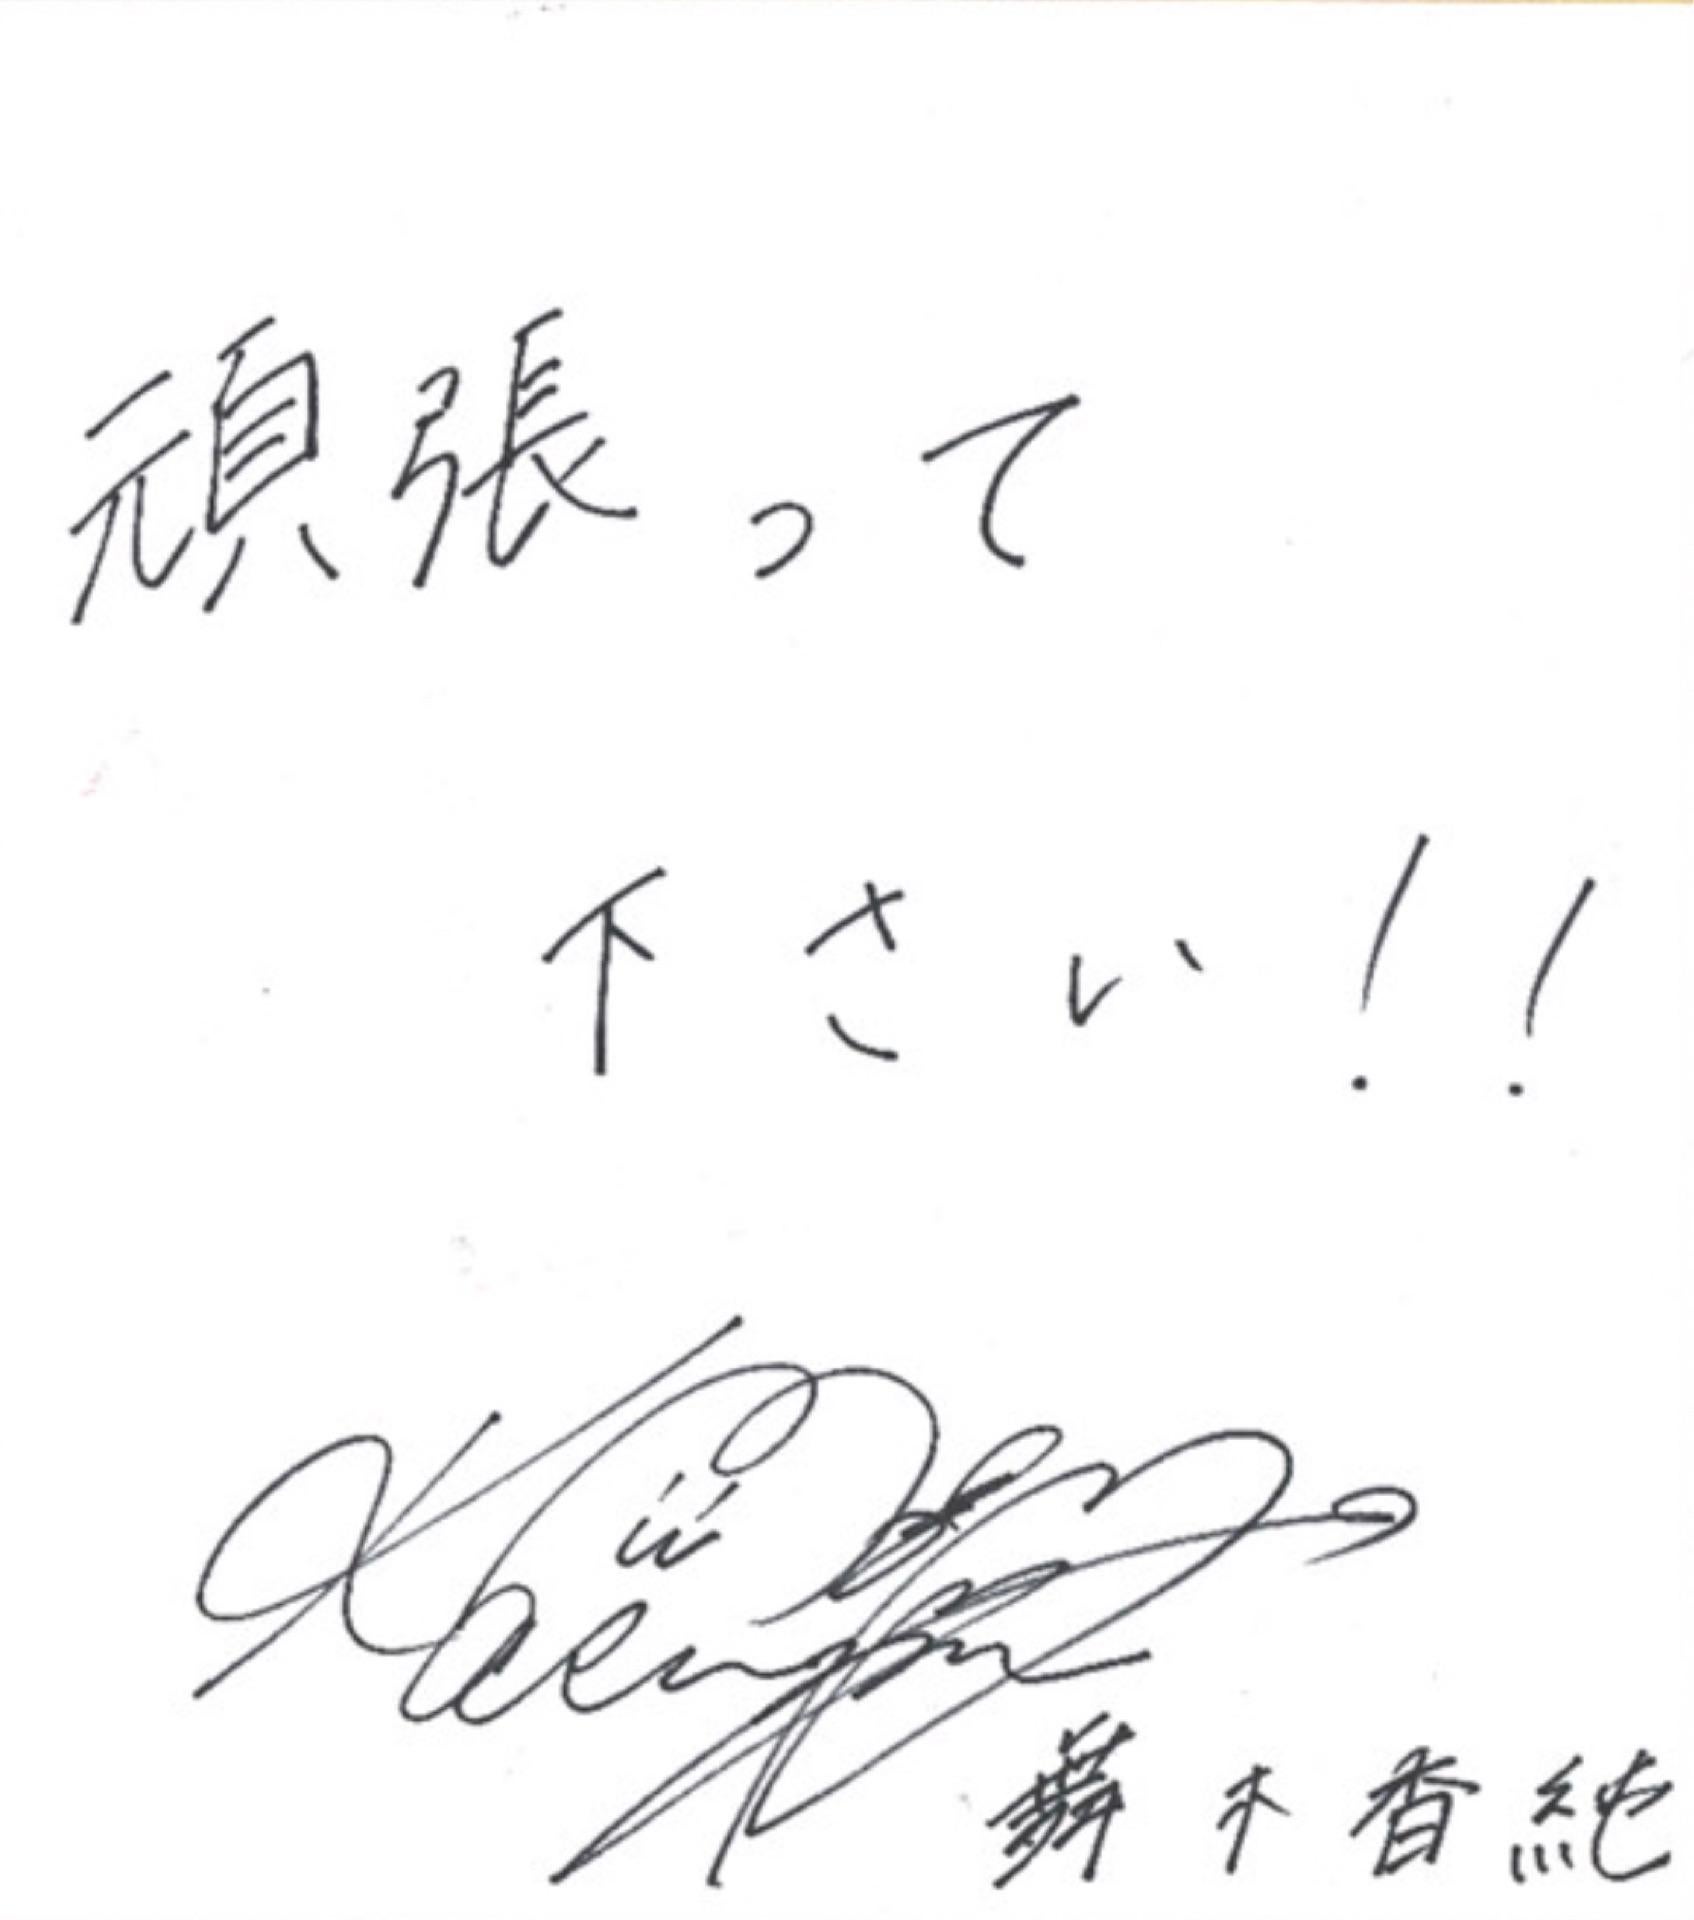 頑張って
下さい!!
舞木香純